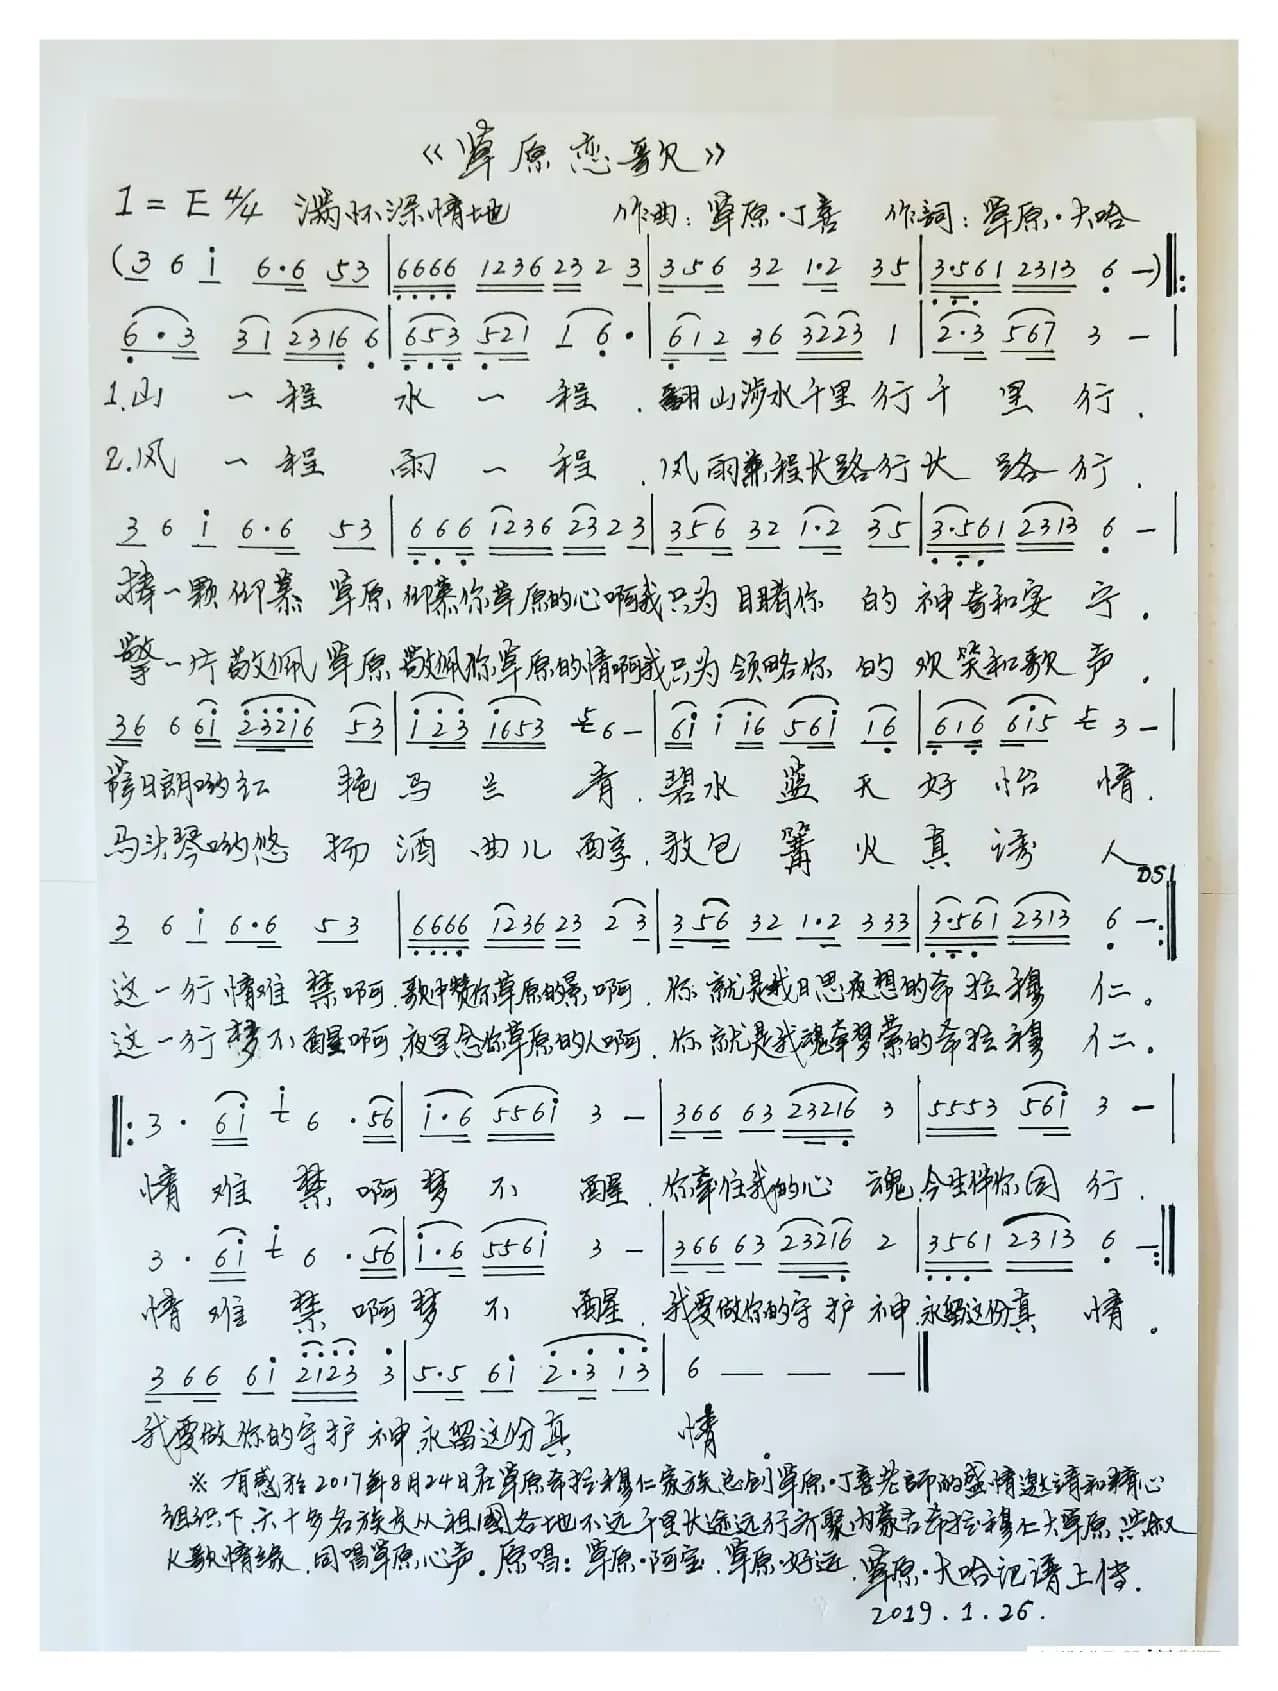 《草原恋歌》
1=E 4/4 满怀深情地 作曲:草原·丁喜 作詞:草原·大哈
(3 6 i 6·6 53 | 6666 1236 23 2 3 | 356 32 1·2 35 | 3·561 2313 6 —) ‖:
6·3 31 2316 6 | 653 521 1 6· | 612 36 3223 1 | 2·3 567 3 — |
1.山一程水一程.翻山涉水千里行千里行.
2.风一程雨一程.风雨兼程长路行长路行.
3 6 i 6·6 53 | 666 1236 23 2 3 | 356 32 1·2 35 | 3·561 2313 6 — |
捧一颗仰慕草原仰慕你草原的心啊我只为目睹你的神奇和安宁.
擎一片敬佩草原敬佩你草原的情啊我只为领略你的欢笑和歌声.
36 6 6i 23216 53 | i23 1653 6 — | 6i i i6 56i 16 | 616 6i5 3 — |
日朗哟红艳马兰青.碧水蓝天好怡情.
马头琴哟悠扬酒曲儿醇.敖包篝火真诱人
DS1
3 6 i 6·6 53 | 6666 1236 23 2 3 | 356 32 1·2 333 | 3·561 2313 6 — :‖
这一行情难禁啊.歌中赞你草原的景啊.你就是我日思夜想的希拉穆仁。
这一行梦不醒啊.夜里念你草原的人啊.你就是我魂牵梦萦的希拉穆仁。
‖: 3· 6i i 6·56 | i·6 556i 3 — | 366 63 23216 3 | 5553 56i 3 — |
情难禁啊梦不醒.你牵住我的心魂.今生伴你同行.
3· 6i i 6·56 | i·6 556i 3 — | 366 63 23216 2 | 3561 2313 6 — :‖
情难禁啊梦不醒.我要做你的守护神.永留这份真情。
366 6i 2123 3 | 5·5 6i 2·3 13 | 6 — — — ‖
我要做你的守护神.永留这份真情。
※有感於2017年8月24日在草原希拉穆仁家族总创草原·丁喜老師的盛情邀请和精心
组织下.六十多名族友从祖國各地不远千里长途远行齐聚内蒙古希拉穆仁大草原.共叙
K歌情缘.同唱草原心声。原唱:草原·阿宝.草原·好远.草原·大哈记谱上傳.
2019.1.26.